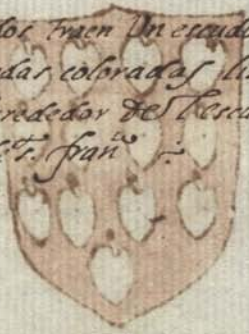 dos traen Un escudo
das coloradas
rededor del esca
es. fran